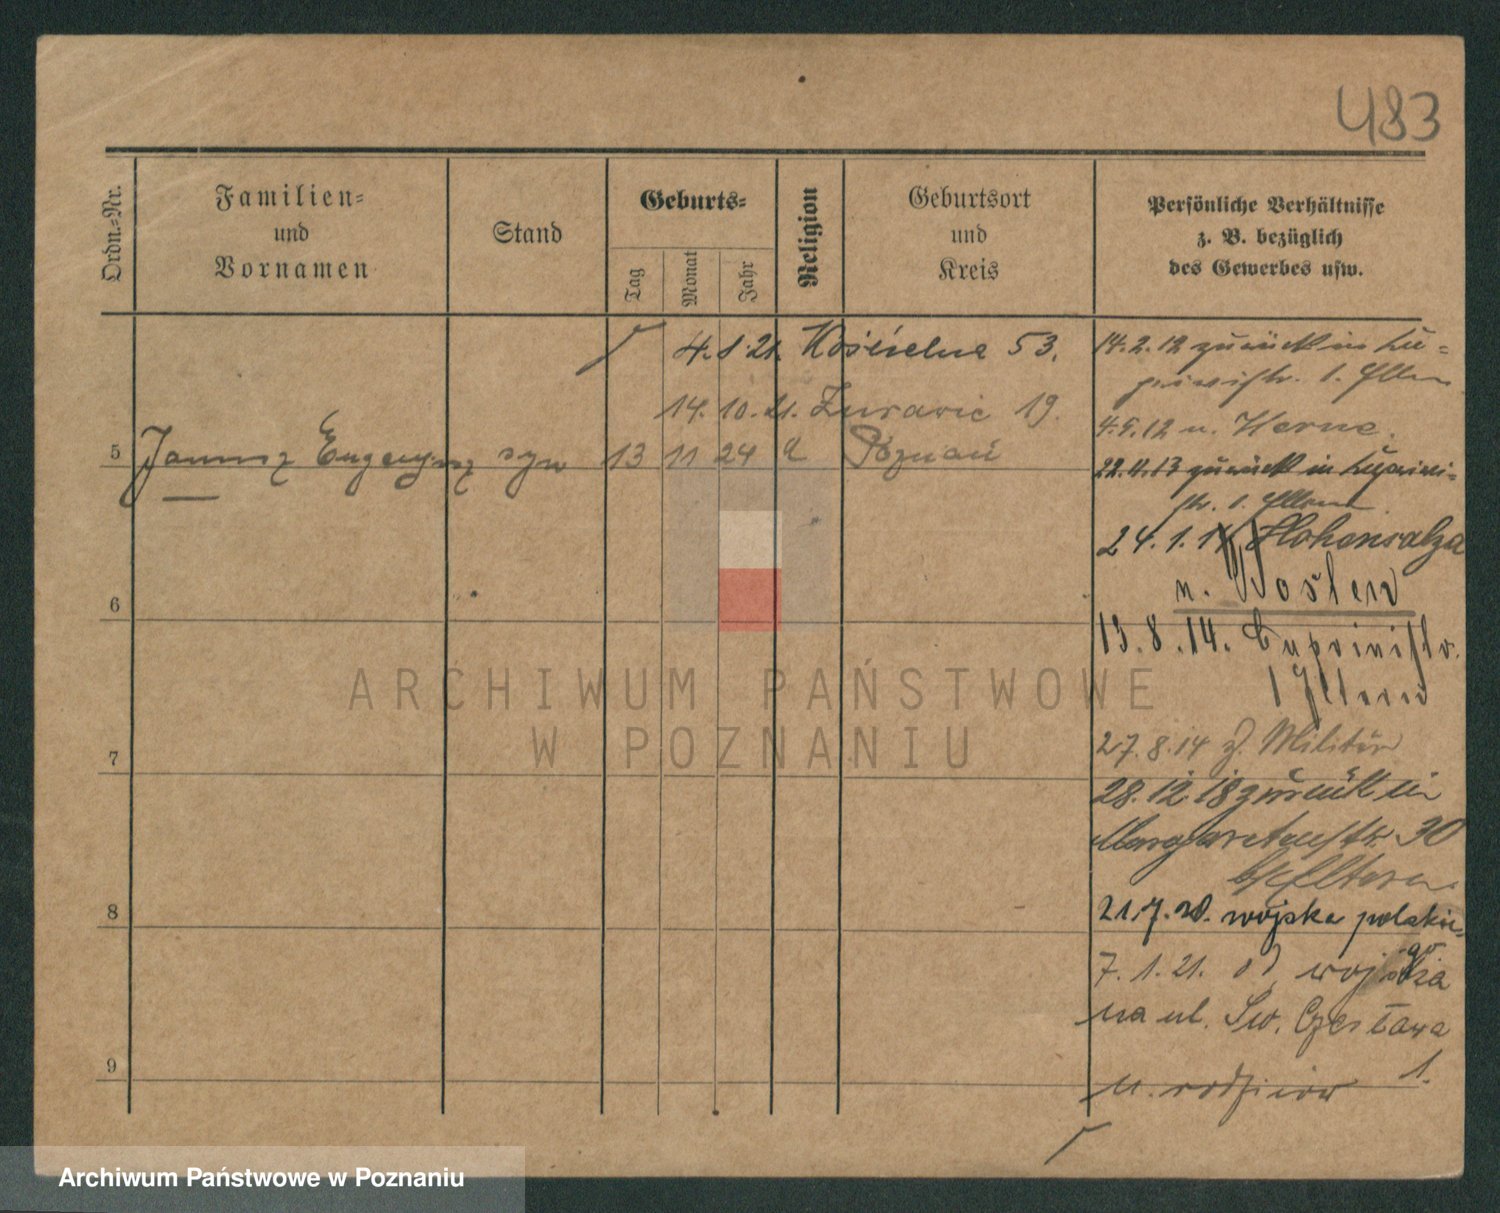 483
Ordn.-Nr.
Familien-
und
Vornamen
Stand
Geburts-
Tag
Monat
Jahr
Religion
Geburtsort
und
Kreis
Persönliche Verhältnisse
z. B. bezüglich
des Gewerbes usw.
4.1.21. Kościelna 53.
14.10.21. Żurawie 19.
5 Janusz Eugenjusz syn 13 11 24 Poznań
6
7
8
9
14.2.12 zurück in Lu-
str. 1. Eltern
4.5.12 n. Herne.
22.4.13 zurück in
str. 1. Eltern
24.1.14 Hohensalza
n.
13.8.14.
1 Eltern
27.8.14 z. Militär
28.12.18 zurück in
Margaretenstr. 30
b/Eltern
21.7.20. wojska polskie-
go
7.1.21. od wojska
na ul. Św. Czesława
1.
u. rodziców
ARCHIWUM PAŃSTWOWE
W POZNANIU
Archiwum Państwowe w Poznaniu